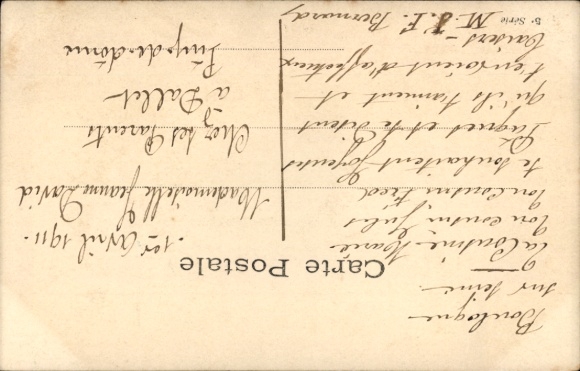 Carte Postale
Boulogne
sur Seine
1er Avril 1911.
Ta Cousine Marie
Ton cousin Jules
Ton Cousin Fred
te souhaitent Joyeuses
Pâques et te disent
qu'ils t'aiment et
t'envoient d'affectueux
baisers
M. J. F. Bernard
Mademoiselle Jeanne David
Chez ses Parents
à Dallet
Puy-de-dôme
5e Série